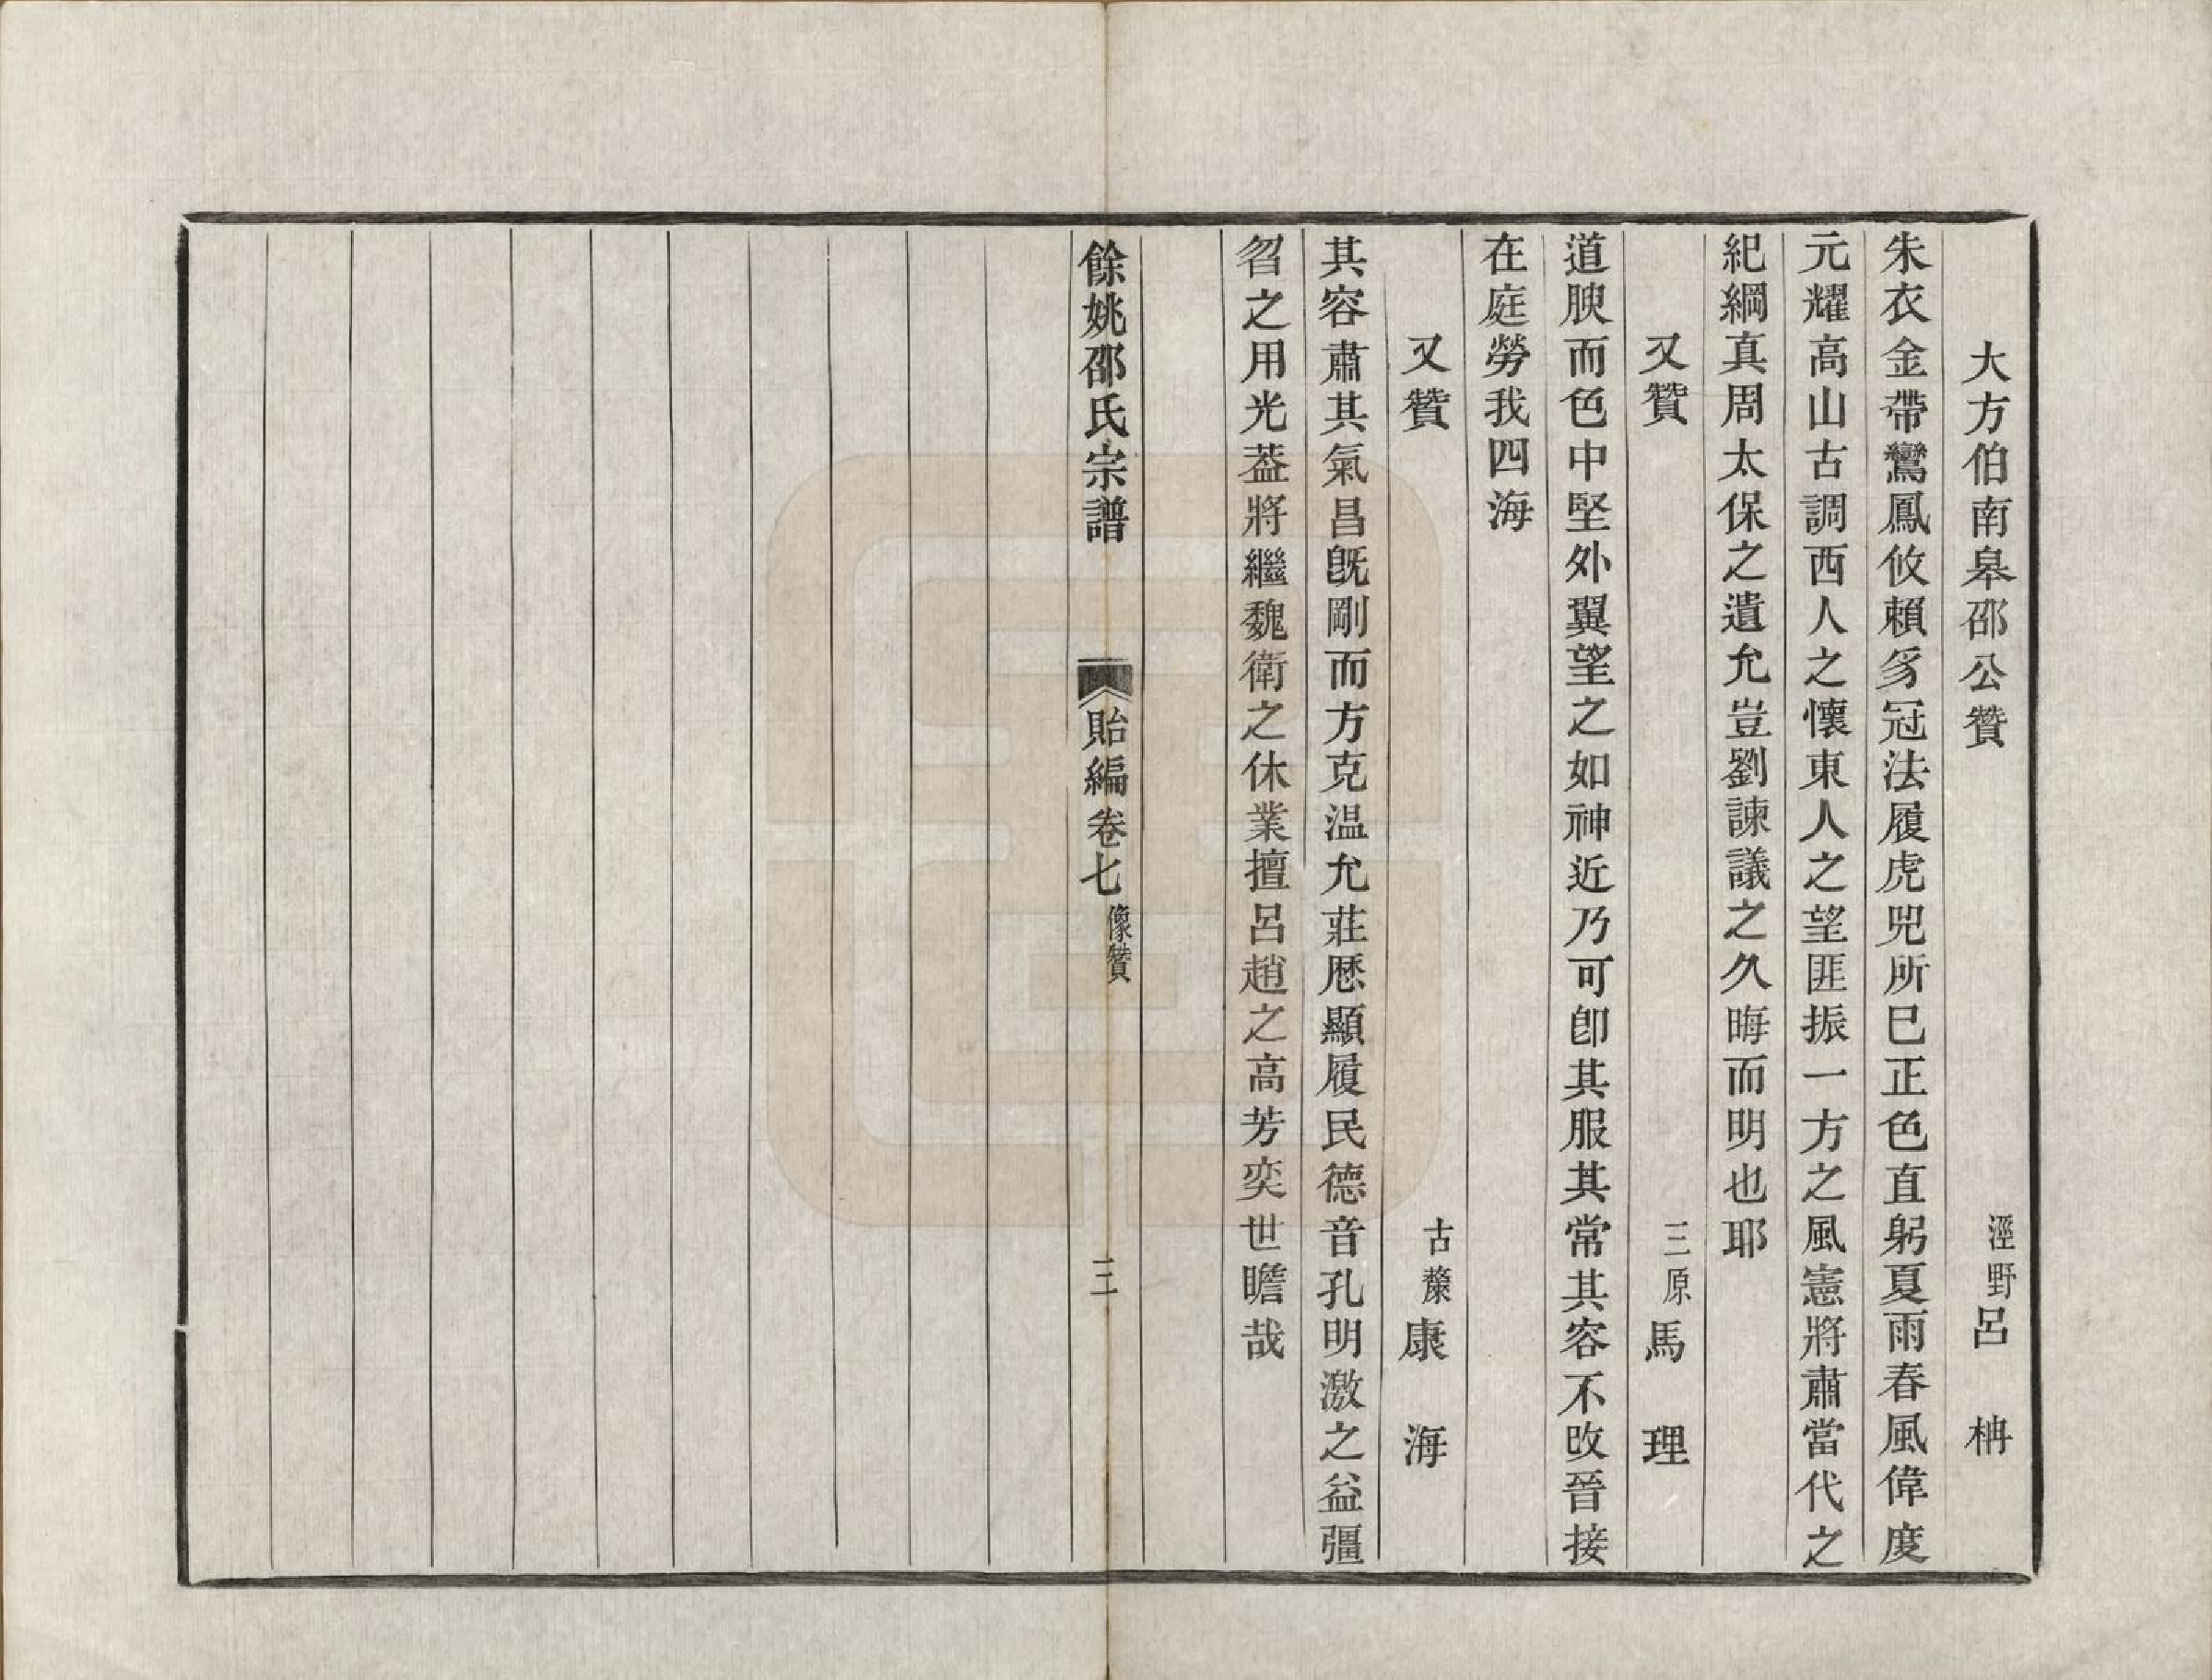 大方伯南皋邵公贊　涇野呂　柟
朱衣金帶鸞鳳攸賴豸冠法履虎兕所巳正色直躬夏雨春風偉度
元耀高山古調西人之懷東人之望匪振一方之風憲將肅當代之
紀綱真周太保之遺允豈劉諫議之久晦而明也耶
又贊　三原馬　理
道腴而色中堅外翼望之如神近乃可卽其服其常其容不改晉接
在庭勞我四海
又贊　古漦康　海
其容肅其氣昌旣剛而方克温允莊歷顯履民德音孔明激之益彊
笤之用光葢將繼魏衛之休業擅呂趙之高芳奕世瞻哉
餘姚邵氏宗譜　貽編卷七　像贊　三